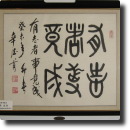 有志
者事
竟成
有志者事竟成
癸未年